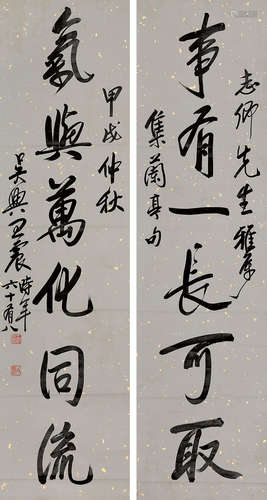 志卿先生雅屬
事有一長可取
集蘭亭句
甲戌仲秋
氣與萬化同流
吳興王震時年
六十有八